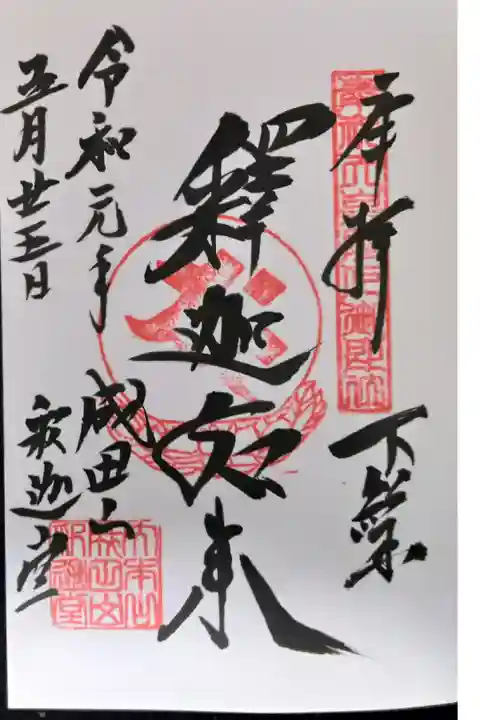 奉拝
下総
釋迦如来
成田山
釈迦堂
令和元年
五月廿五日
大本山
成田山
釈迦堂